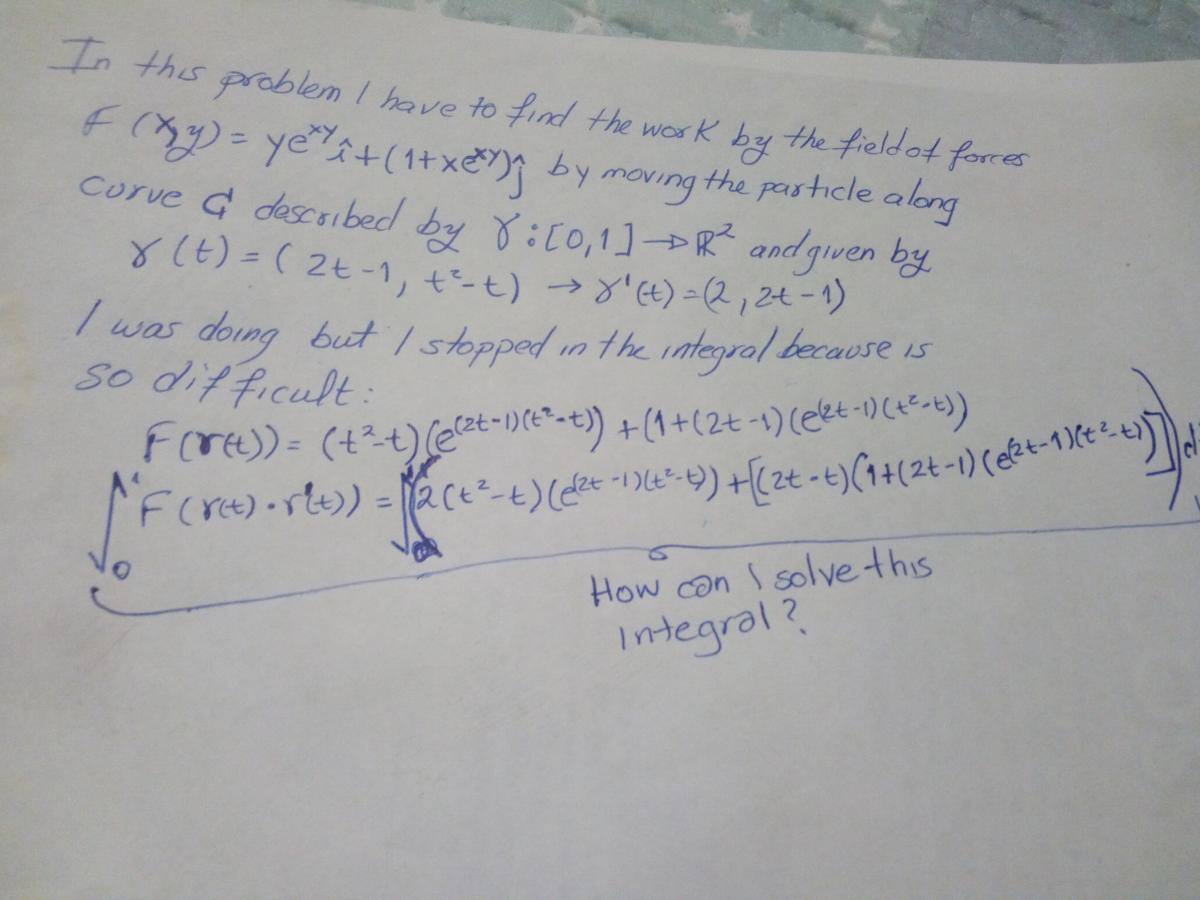 In this problem I have to find the work by the field of forces
F(x,y) = ye^{xy} î + (1+xe^{xy}) ĵ by moving the particle along
curve C described by γ:[0,1]→ℝ² and given by
γ(t) = (2t-1, t²-t) → γ'(t) = (2, 2t-1)
I was doing but I stopped in the integral because is
so difficult:
F(γ(t)) = (t²-t)(e^{(2t-1)(t²-t)}) + (1+(2t-1)(e^{(2t-1)(t²-t)})
∫₀¹ F(γ(t)·γ'(t)) = ∫₀ (2(t²-t)(e^{(2t-1)(t²-t)}) + [(2t-t)(1+(2t-1)(e^{(2t-1)(t²-t)})])
How can I solve this
integral?